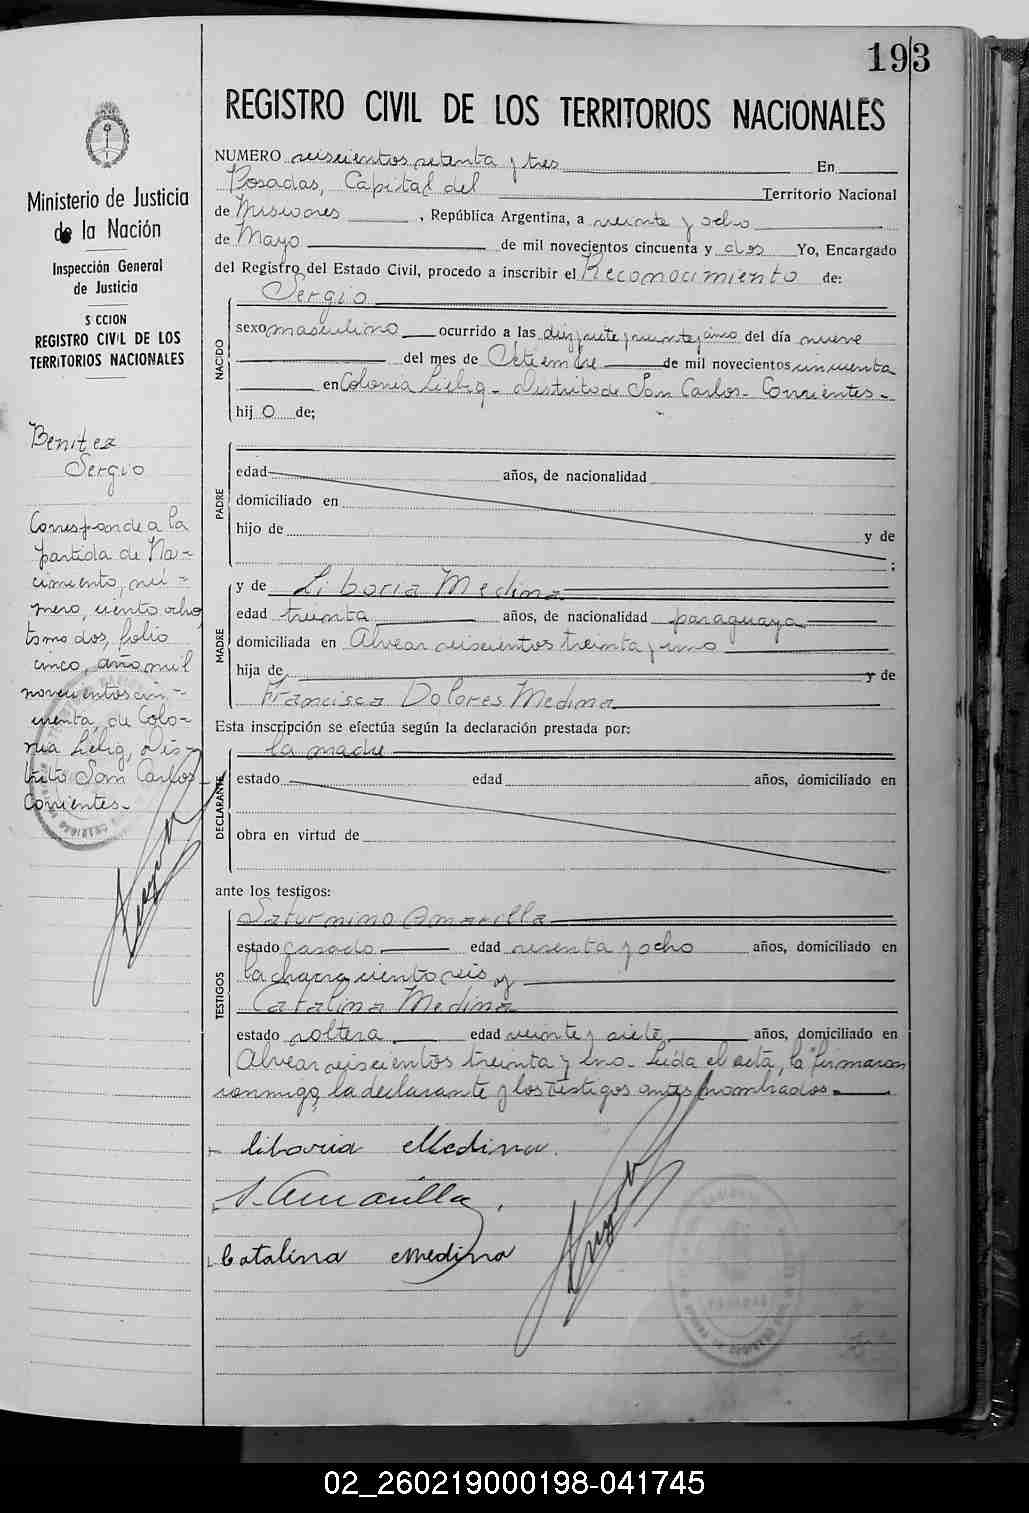 193
REGISTRO CIVIL DE LOS TERRITORIOS NACIONALES
NUMERO seiscientos setenta y tres En
Posadas, Capital del Territorio Nacional
de Misiones , República Argentina, a veinte y ocho
de Mayo de mil novecientos cincuenta y dos Yo, Encargado
del Registro del Estado Civil, procedo a inscribir el Reconocimiento de:
NACIDO
Sergio
sexo masculino ocurrido a las diez y siete y veinte y cinco del día nueve
del mes de Setiembre de mil novecientos cincuenta
en Colonia Liebig - Distrito de San Carlos - Corrientes -
hij o de;
PADRE
edad años, de nacionalidad
domiciliado en
hijo de y de
;
MADRE
y de Liboria Medina
edad treinta años, de nacionalidad paraguaya
domiciliada en Alvear seiscientos treinta y uno
hija de y de
Francisca Dolores Medina
Esta inscripción se efectúa según la declaración prestada por:
DECLARANTE
la madre
estado edad años, domiciliado en
obra en virtud de
ante los testigos:
TESTIGOS
Saturnino Amarilla
estado casado edad sesenta y ocho años, domiciliado en
la chacra ciento seis y
Catalina Medina
estado soltera edad veinte y siete años, domiciliado en
Alvear seiscientos treinta y uno. Leída el acta, la firmaron
conmigo, la declarante y los testigos antes nombrados.
Liboria Medina.
S. Amarilla.
Catalina Medina
Ministerio de Justicia
de la Nación
Inspección General
de Justicia
S CCION
REGISTRO CIVIL DE LOS
TERRITORIOS NACIONALES
Benitez
Sergio
Corresponde a la
partida de Na-
cimiento, nú-
mero, ciento ocho
tomo dos, folio
cinco, año mil
novecientos cin-
cuenta, de Colo-
nia Liebig, Dis-
trito San Carlos
Corrientes-
02_260219000198-041745